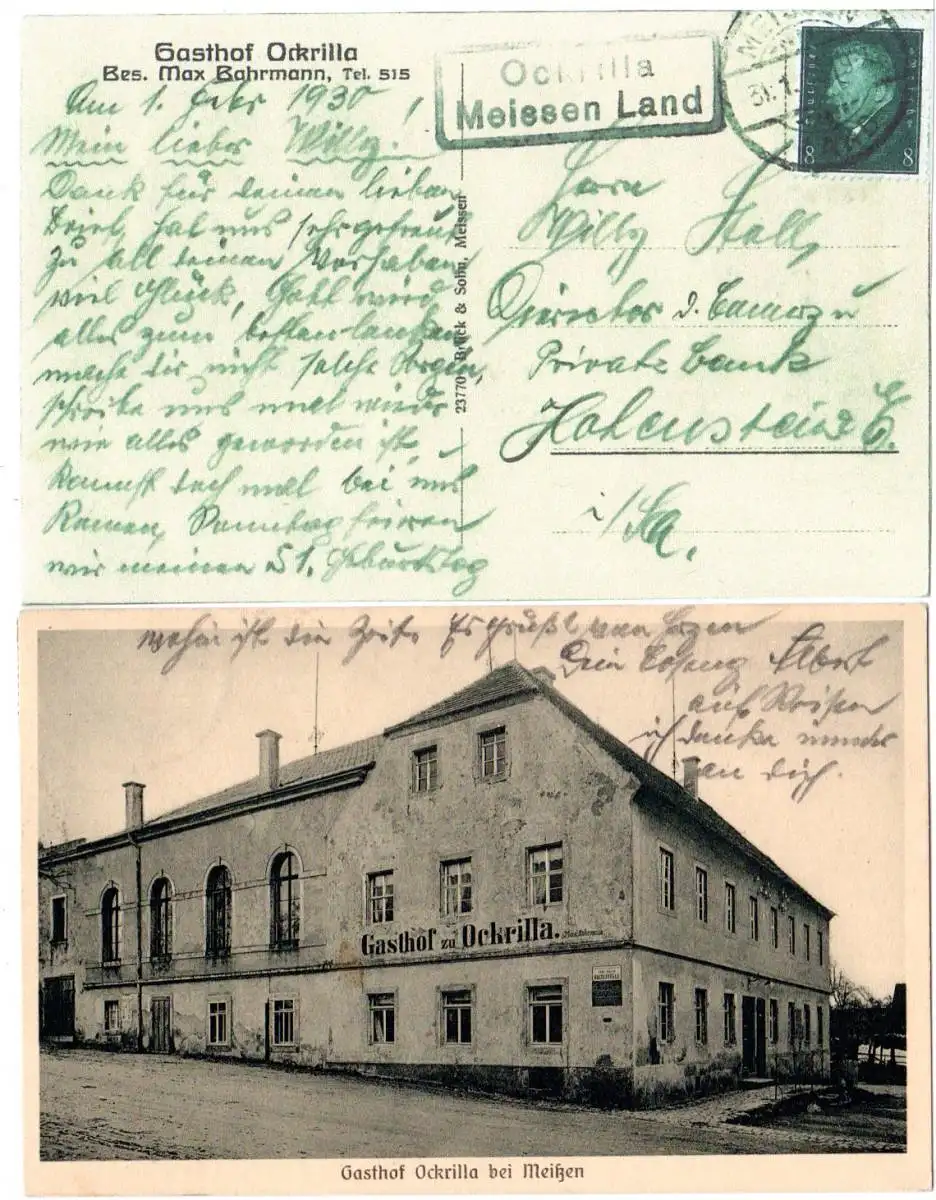 Gasthof Ockrilla
Bes. Max Bahrmann, Tel. 515
Ockrilla
Meissen Land
8 8
Am 1. Febr 1930
Mein lieber Willy!
Dank für deinen lieben
Brief, hat uns sehr gefreut
Zu all deinen Vorhaben
viel Glück, Gott wird
alles zum besten lenken
mache dir nicht solche Sorgen,
schreibe uns mal wieder
wie alles geworden ist.
Kommst doch mal bei uns
Sonntag feiern
wir meinen 51. Geburtstag
23770 Brück & Sohn, Meissen
Herrn
Willy
Director d.
Private Bank
Hohenstein E.
i/Sa.
ist die Zeit. Es grüßt von Herzen
Dein Albert
auf Reisen
ich denke immer
an dich.
Gasthof zu Ockrilla.
Gasthof Ockrilla bei Meißen